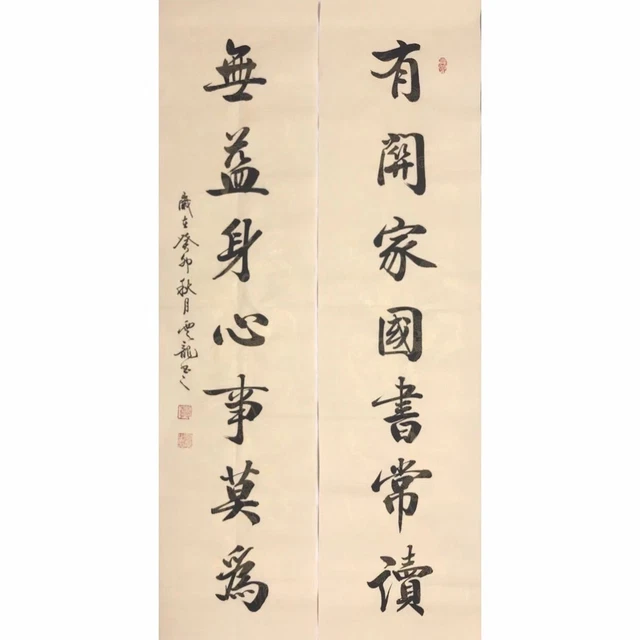 有關家國書常讀
無益身心事莫為
歲在癸卯秋月雲龍書